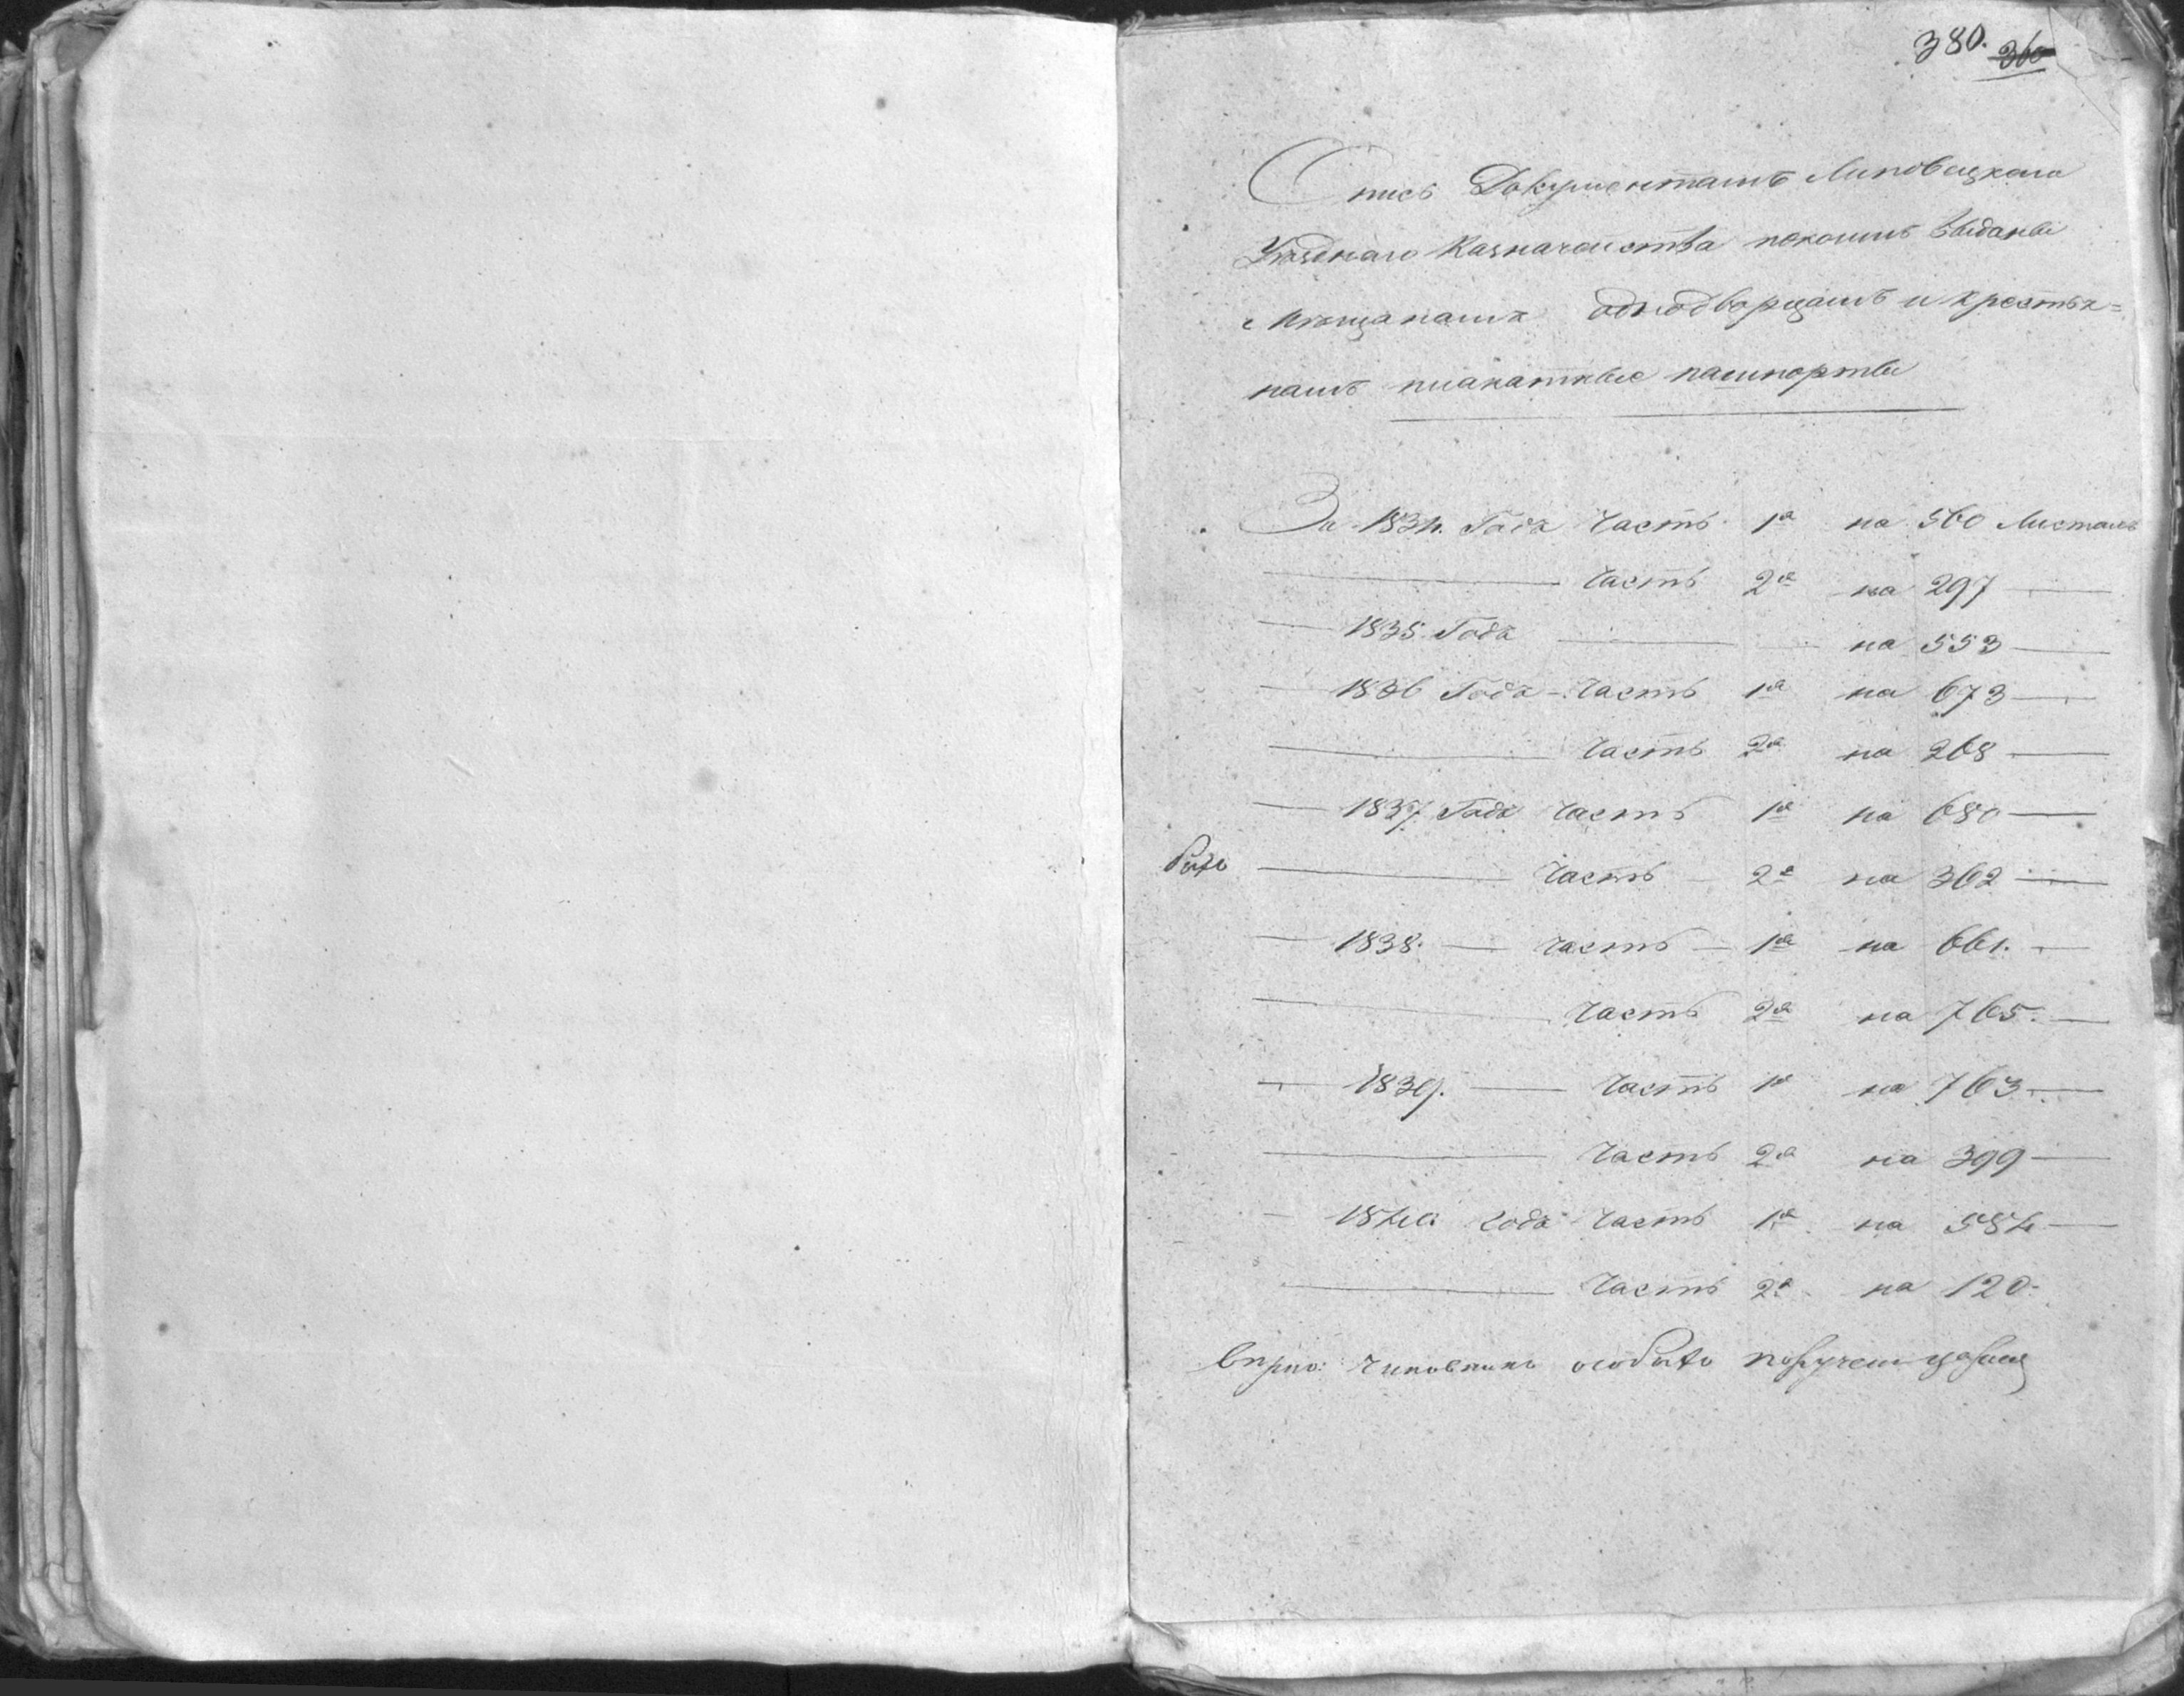 380. 360
Опись Документамъ Липовецкаго
Уѣзднаго Казначейства покоимъ выданы
Мѣщанамъ однодворцамъ и крестья=
намъ плакатные пашпорты
За 1834. Годъ Часть 1я на 560 Листахъ
— Часть 2я на 297 —
— 1835 Годъ — на 553 —
— 1836 Годъ - Часть 1я на 673 —
— Часть 2я на 268 —
— 1837 Годъ Часть 1я на 680 —
— Часть — 2я на 362 —
— 1838. — Часть — 1я на 661. —
— Часть 2я на 765. —
— 1839. — Часть 1я на 763 —
— Часть 2я на 399 —
— 1840 Годъ Часть 1я на 584 —
— Часть 2я на 120.
Вѣрно: Чиновникъ особыхъ порученій